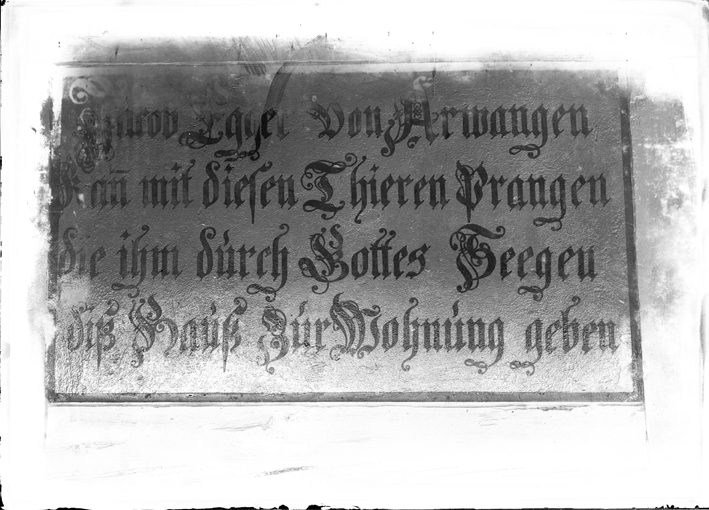 Jacob Egger Von Arwangen
Kan̄ mit diesen Thieren Prangen
die ihm dúrch Gottes Seegen
diß Haúß Zúr Wohnúng geben